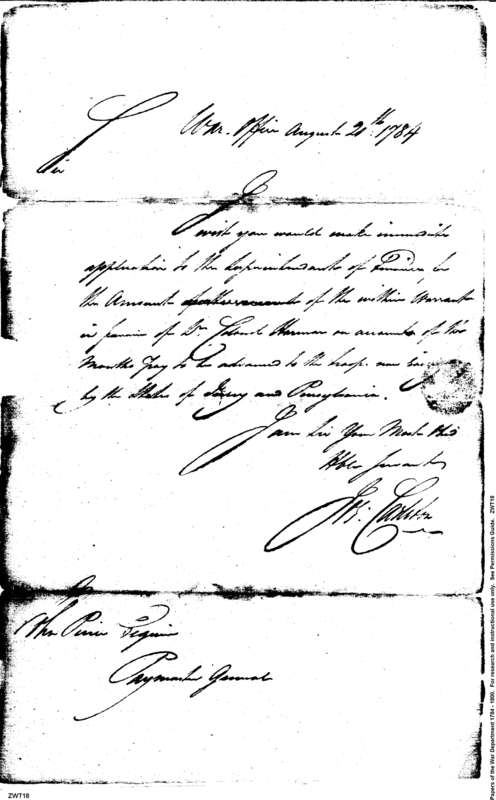 War Office August 20th 1784
Sir
I
wish you would make immediate
application to the Superintendants of Finance for
the Amount of the within Warrant
in favor of Lt. Colonel Harmar on account of two
Months Pay to be advanced to the troops now
by the States of Jersey and Pennsylvania.
I am Sir Your Most Obd
Hble Servant
Jos: Carleton
John Pierce Esquire
Paymaster General
Papers of the War Department 1784 - 1800. For research and instructional use only. See Permissions Guide. ZWT18
ZWT18